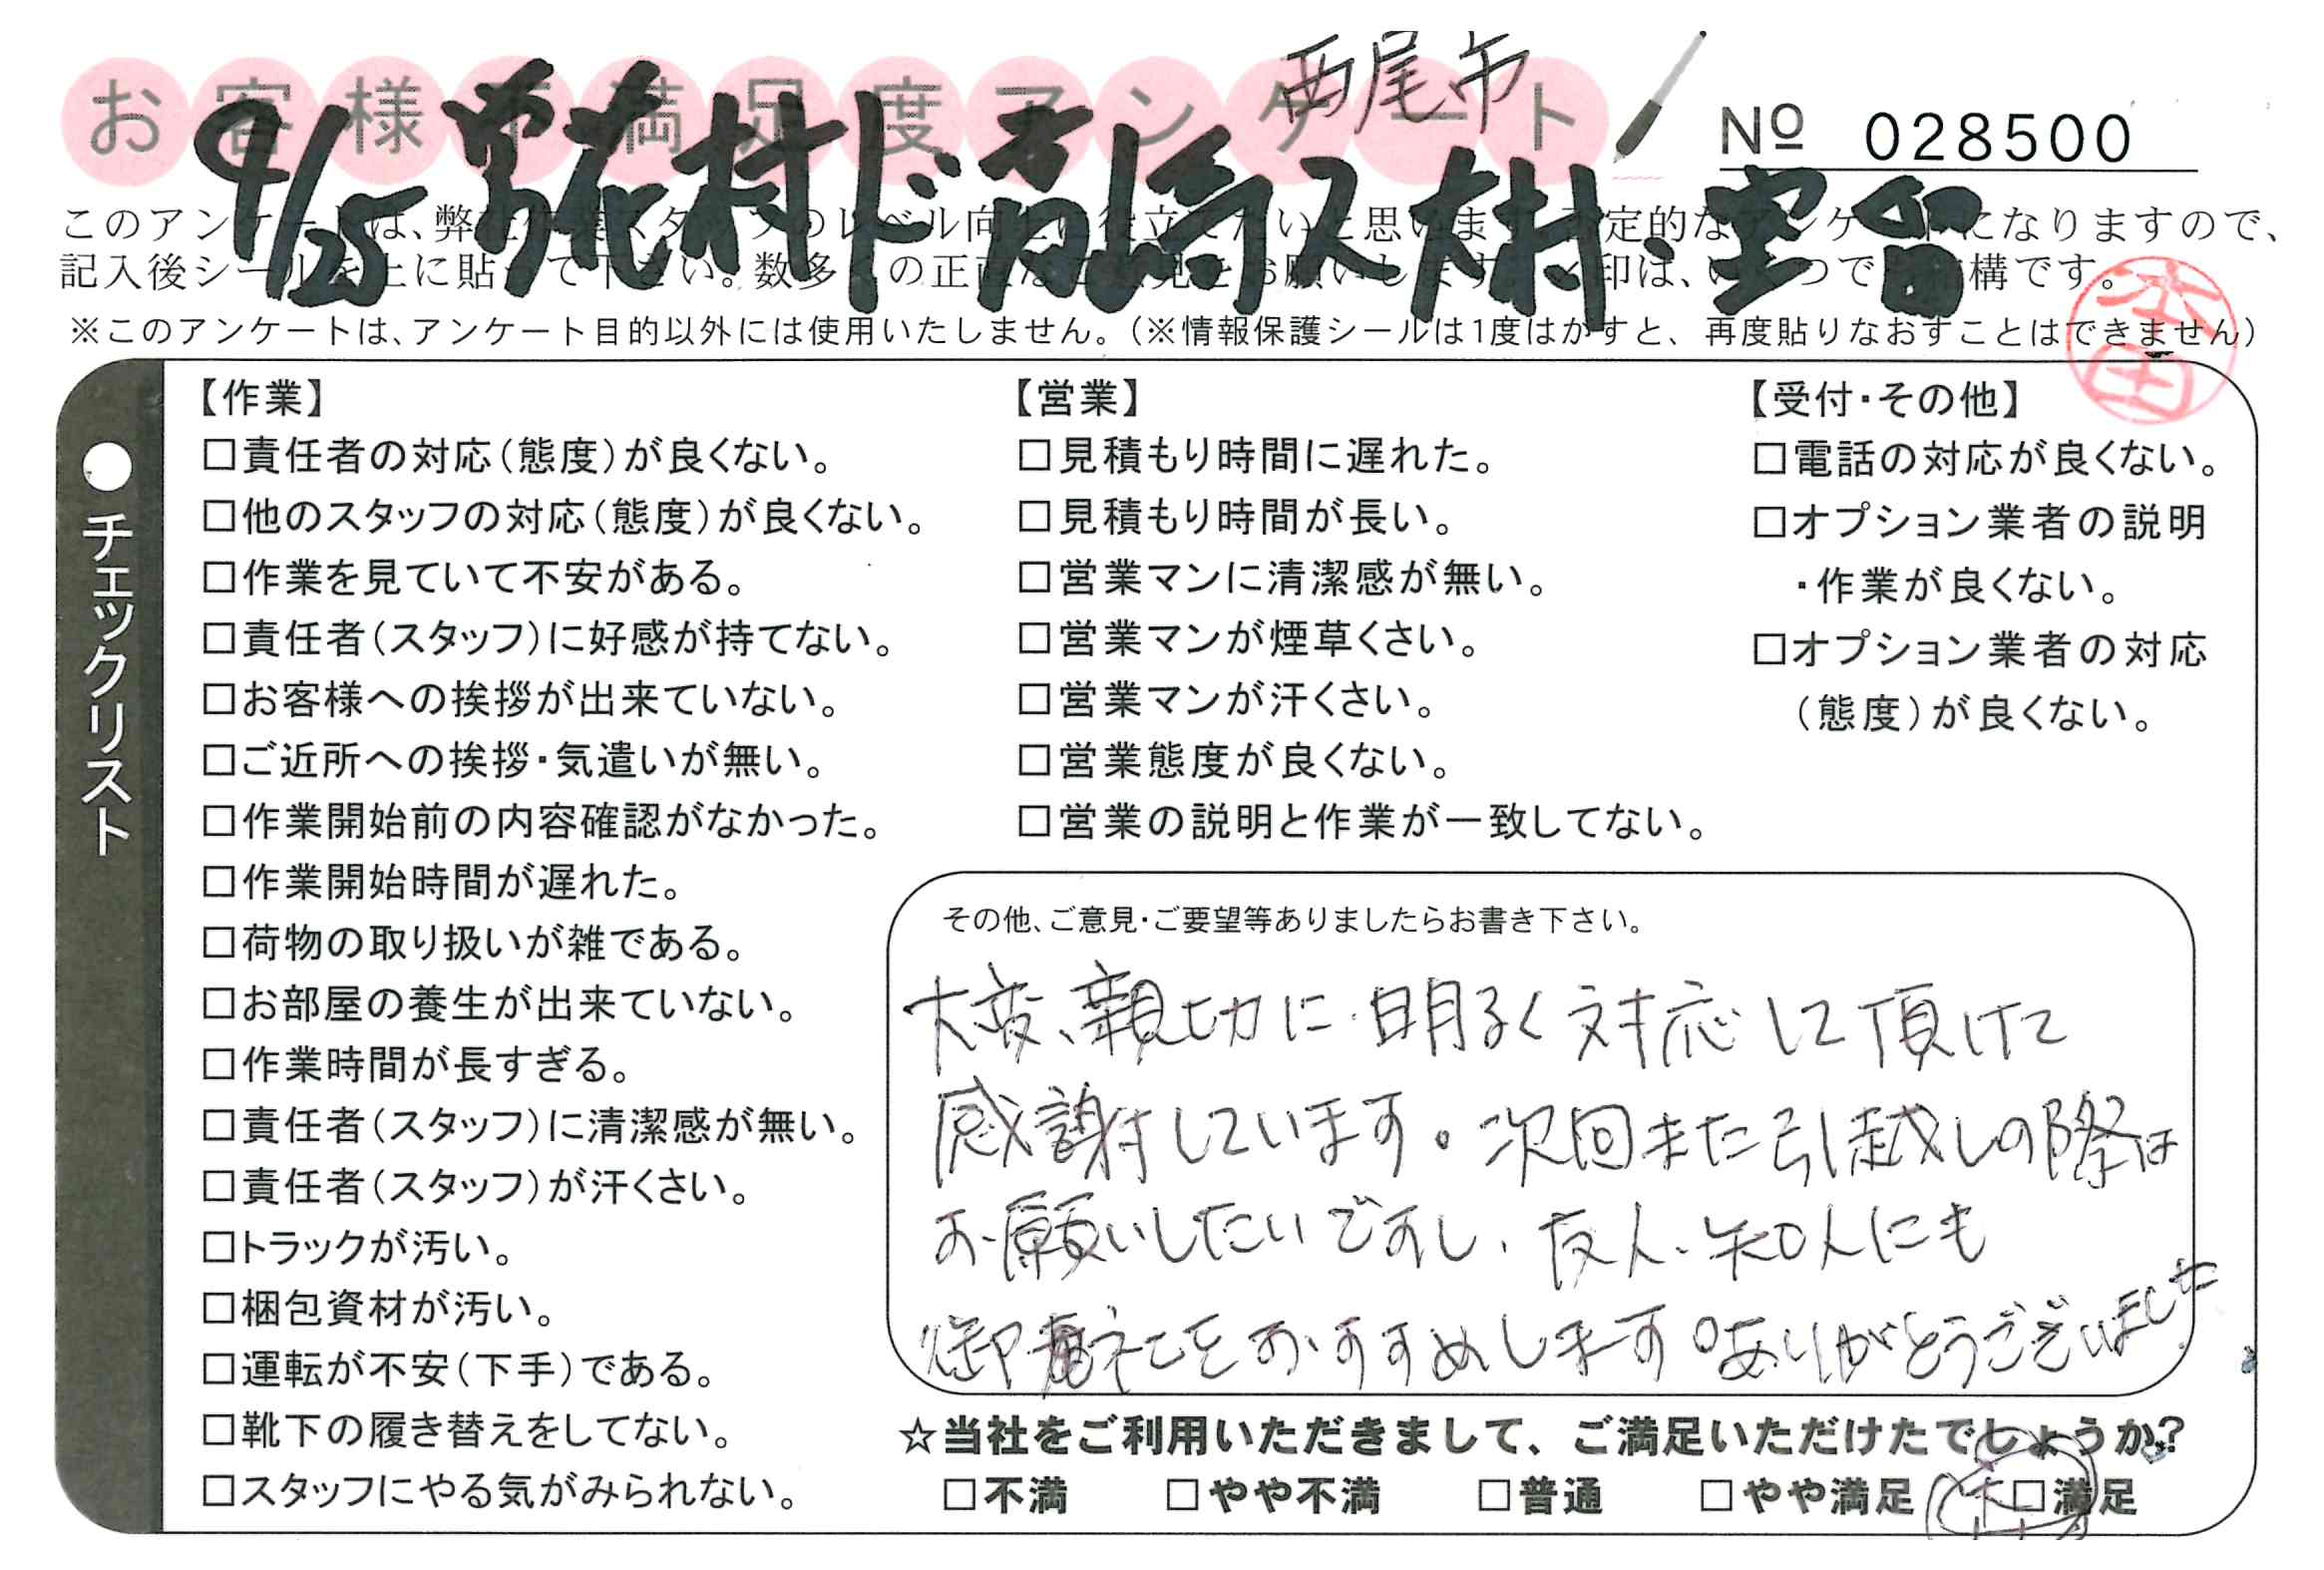 西尾市
お客様不満足度アンケート
№ 028500
9/25
このアンケートは、弊社作業スタッフのレベル向上に役立てたいと思います。否定的なアンケートになりますので、
記入後シールを上に貼って下さい。数多くの正直なご意見をお願いします。✓印は、いくつでも結構です。
※このアンケートは、アンケート目的以外には使用いたしません。(※情報保護シールは1度はがすと、再度貼りなおすことはできません)
●チェックリスト
【作業】
□責任者の対応(態度)が良くない。
□他のスタッフの対応(態度)が良くない。
□作業を見ていて不安がある。
□責任者(スタッフ)に好感が持てない。
□お客様への挨拶が出来ていない。
□ご近所への挨拶・気遣いが無い。
□作業開始前の内容確認がなかった。
□作業開始時間が遅れた。
□荷物の取り扱いが雑である。
□お部屋の養生が出来ていない。
□作業時間が長すぎる。
□責任者(スタッフ)に清潔感が無い。
□責任者(スタッフ)が汗くさい。
□トラックが汚い。
□梱包資材が汚い。
□運転が不安(下手)である。
□靴下の履き替えをしてない。
□スタッフにやる気がみられない。
【営業】
□見積もり時間に遅れた。
□見積もり時間が長い。
□営業マンに清潔感が無い。
□営業マンが煙草くさい。
□営業マンが汗くさい。
□営業態度が良くない。
□営業の説明と作業が一致してない。
【受付・その他】
□電話の対応が良くない。
□オプション業者の説明
・作業が良くない。
□オプション業者の対応
(態度)が良くない。
その他、ご意見・ご要望等ありましたらお書き下さい。
大変、親切に明るく対応して頂けて
感謝しています。次回また引越しの際は
お願いしたいですし、友人・知人にも
御社をおすすめします。ありがとうございました
☆当社をご利用いただきまして、ご満足いただけたでしょうか?
□不満 □やや不満 □普通 □やや満足 □満足